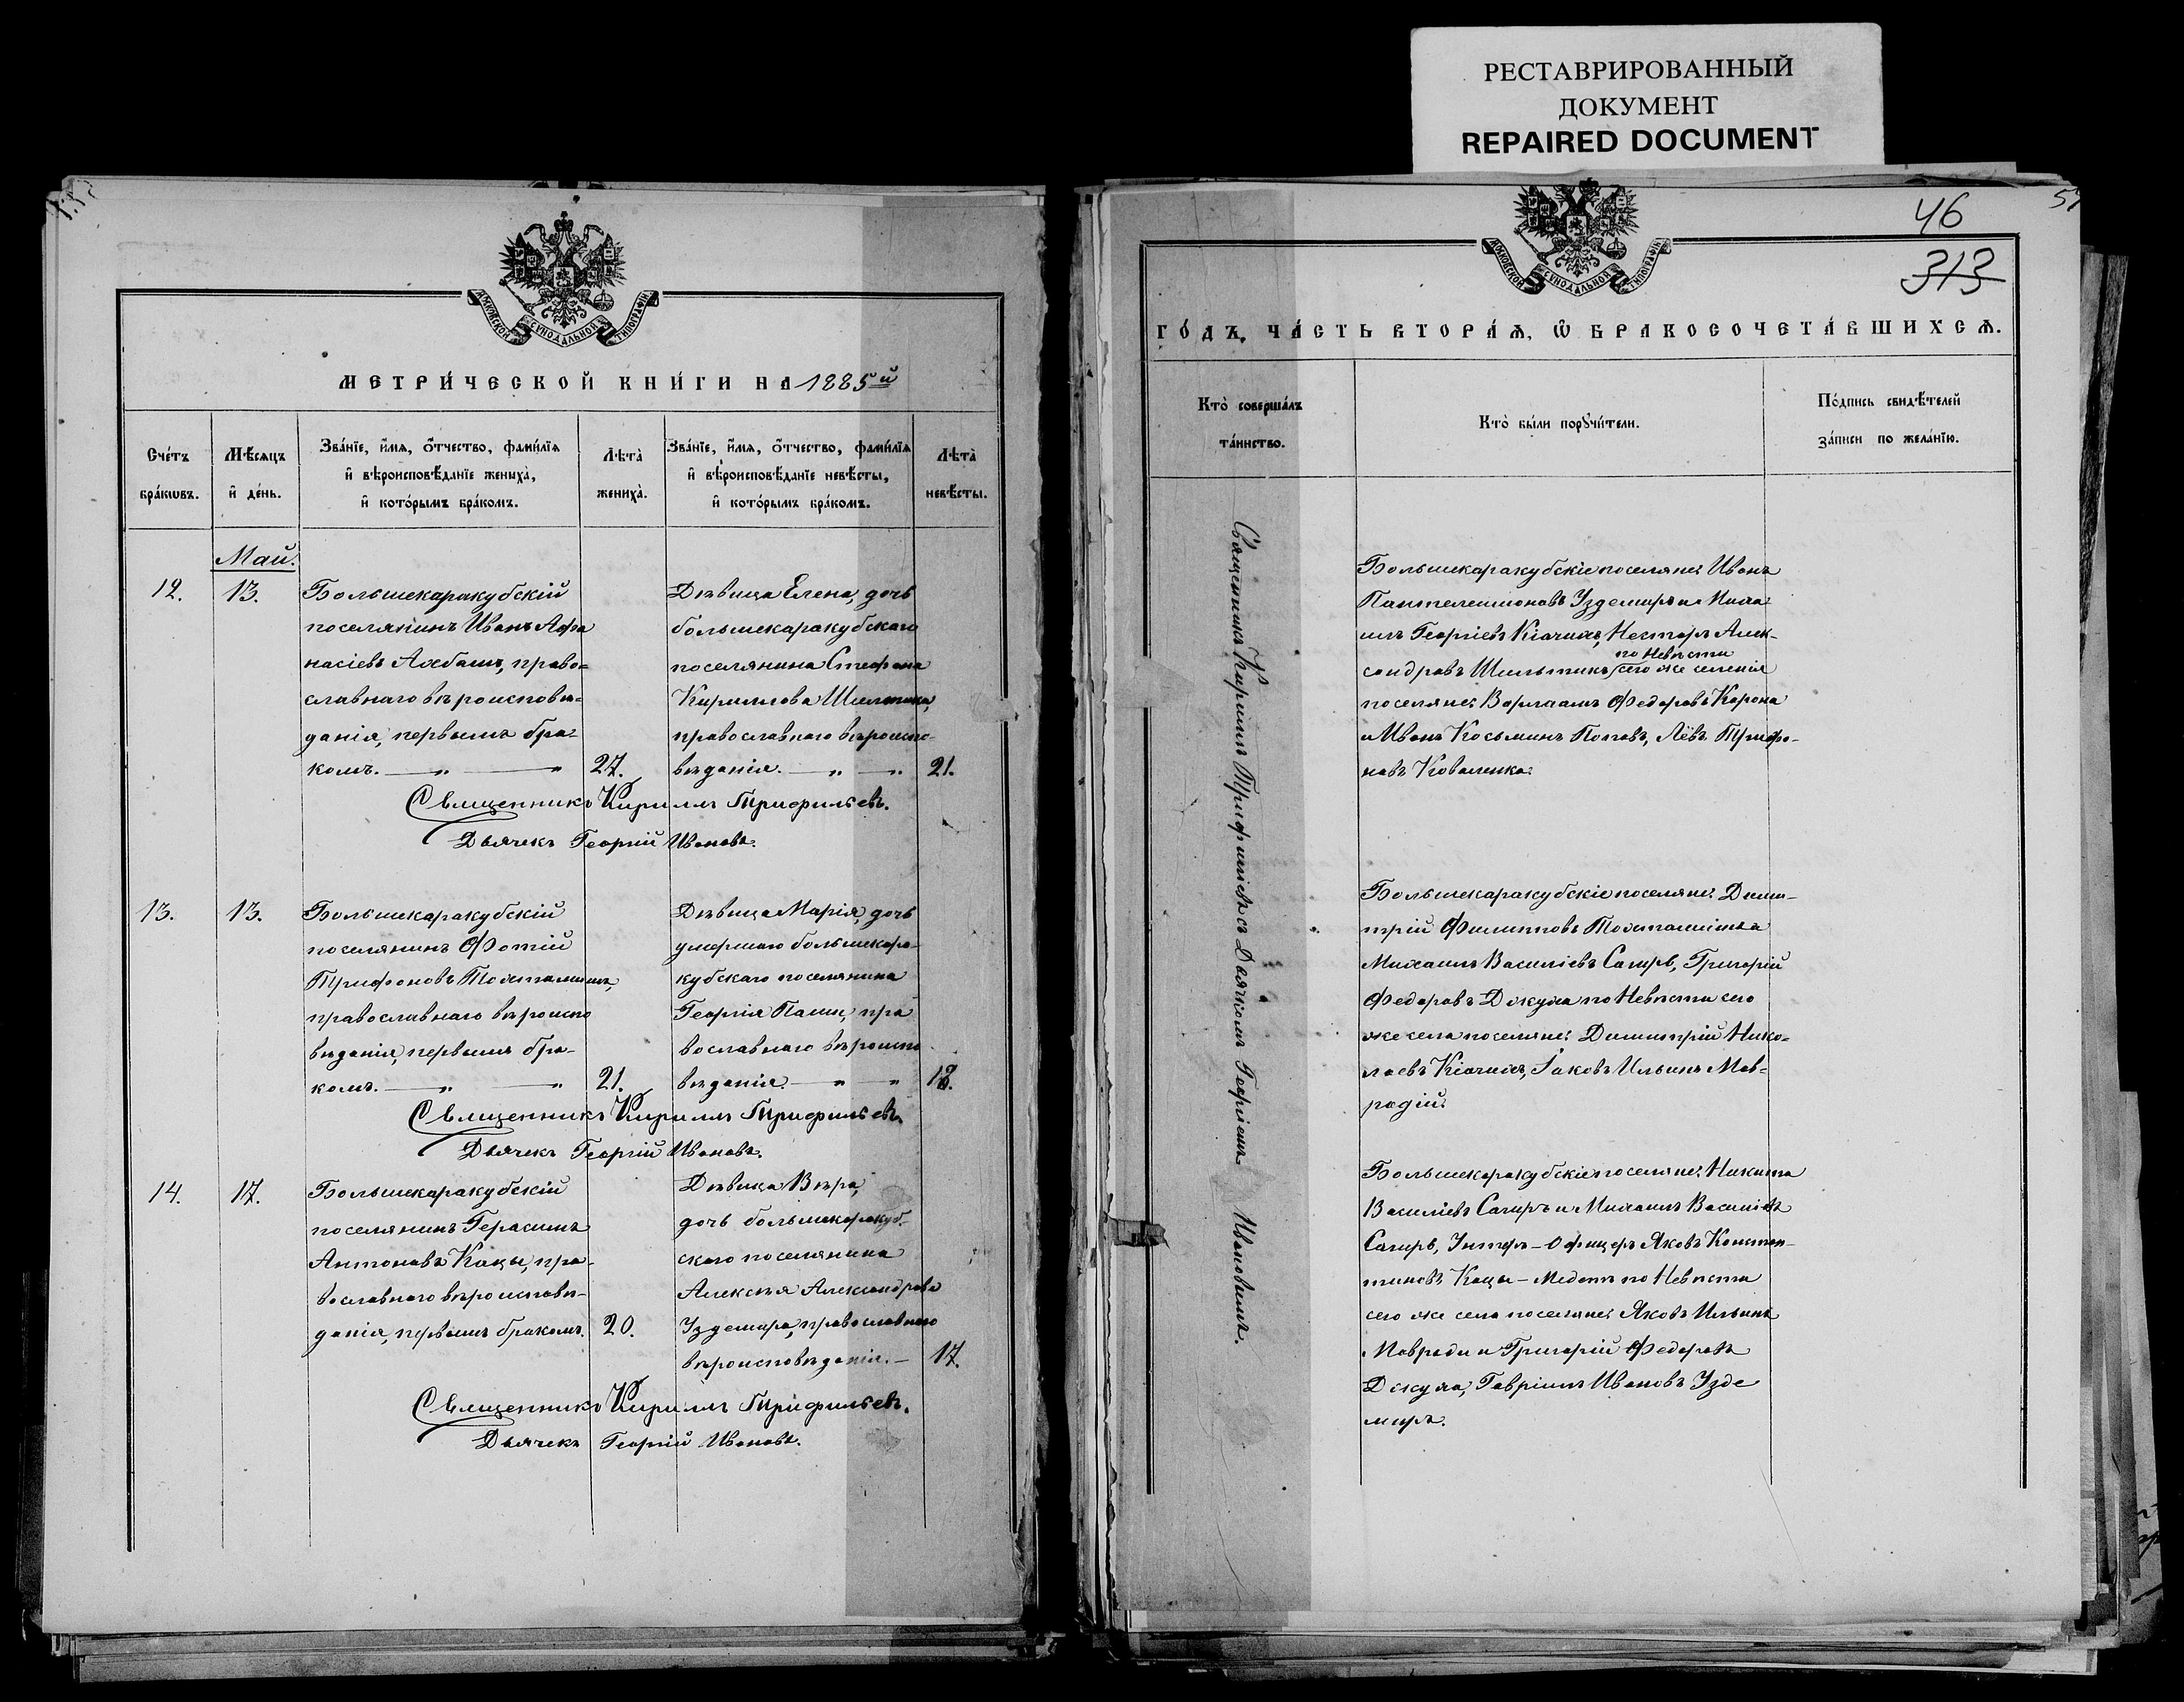 РЕСТАВРИРОВАННЫЙ
ДОКУМЕНТ
REPAIRED DOCUMENT
МОСКОВСКОЙ СѴНОДАЛЬНОЙ ТИПОГРАФІИ
МЕТРИ́ЧЕСКОЙ КНИ́ГИ НА 1885й
Сче́тъ
бра́кωвъ.
Мѣ́сяцъ
и҆ де́нь.
Зва́нїе, и҆́мя, ѻ҆́тчество, фами́лїя
и҆ вѣроисповѣ́данїе жениха̀,
и҆ кото́рымъ бра́комъ.
Лѣта̀
жениха̀.
Зва́нїе, и҆́мя, ѻ҆́тчество, фами́лїя
и҆ вѣроисповѣ́данїе невѣ́сты,
и҆ кото́рымъ бра́комъ.
Лѣта̀
невѣ́сты.
Май.
12.
13.
Большекаракубскій
поселянинъ Иванъ Афа
насіевъ Ахбашъ, право=
славнаго вѣроисповѣ=
данія, первымъ бра-
комъ. — „ — „
27.
Дѣвица Елена, дочь
большекаракубскаго
поселянина Стефана
Кириллова Шилтика,
православнаго вѣроиспо-
вѣданія. — „ — „
21.
Священникъ Кириллъ Трифильевъ.
Дьячекъ Георгій Ивановъ.
13.
13.
Большекаракубскій
поселянинъ Фотій
Трифоновъ Тохтамышъ,
православнаго вѣроиспо
вѣданія, первымъ бра-
комъ. — „ — „
21.
Дѣвица Марія, дочь
умершаго большекара-
кубскаго поселянина
Георгія Паши, пра
вославнаго вѣроиспо
вѣданія. — „ — „
18.
Священникъ Кириллъ Трифильевъ.
Дьячекъ Георгій Ивановъ.
14.
17.
Большекаракубскій
поселянинъ Герасимъ
Антоновъ Кацы, пра-
вославнаго вѣроисповѣ-
данія, первымъ бракомъ.
20.
Дѣвица Вѣра,
дочь большекаракуб-
скаго поселянина
Алексѣя Александрова
Уздемира, православнаго
вѣроисповѣданія. —
17.
Священникъ Кириллъ Трифильевъ.
Дьячекъ Георгій Ивановъ.
46
313
МОСКОВСКОЙ СѴНОДАЛЬНОЙ ТИПОГРАФІИ
ГО́ДЪ, ЧА́СТЬ ВТОРА́Я, Ѽ БРАКОСОЧЕТА́ВШИХСЯ.
Кто̀ соверша́лъ
та́инство.
Кто̀ бы́ли порꙋчи́тели.
По́дпись свидѣ́телей
за́писи по жела́нїю.
Священникъ Кириллъ Трифильевъ съ Дьячкомъ Георгіемъ Ивановымъ.
Большекаракубскіе поселяне: Иванъ
Пантелеимоновъ Уздемиръ и Миха
илъ Георгіевъ Кіачихъ, Несторъ Алек-
сандровъ Шилтикъ по Невѣсти сего же селенія
поселяне: Варлаамъ Федоровъ Карона
и Иванъ Косьминъ Поповъ, Лёвъ Трифо-
новъ Коваленко.
Большекаракубскіе поселяне: Дими-
трій Филипповъ Тохтамышъ и
Михаилъ Василіевъ Сагиръ, Григорій
Федоровъ Джуха по Невѣсти сего
же села поселяне: Димитрій Нико=
лаевъ Кіачихъ, Іаковъ Ильинъ Мав-
родій.
Большекаракубскіе поселяне: Никита
Василіевъ Сагиръ и Михаилъ Василіевъ
Сагиръ, Унтеръ-Офицеръ Яковъ Констан-
тиновъ Кацы - по Невѣсти
сего же села поселяне: Яковъ Ильинъ
Мавроди и Григорій Федоровъ
Джуха, Гавріилъ Ивановъ Узде
миръ.